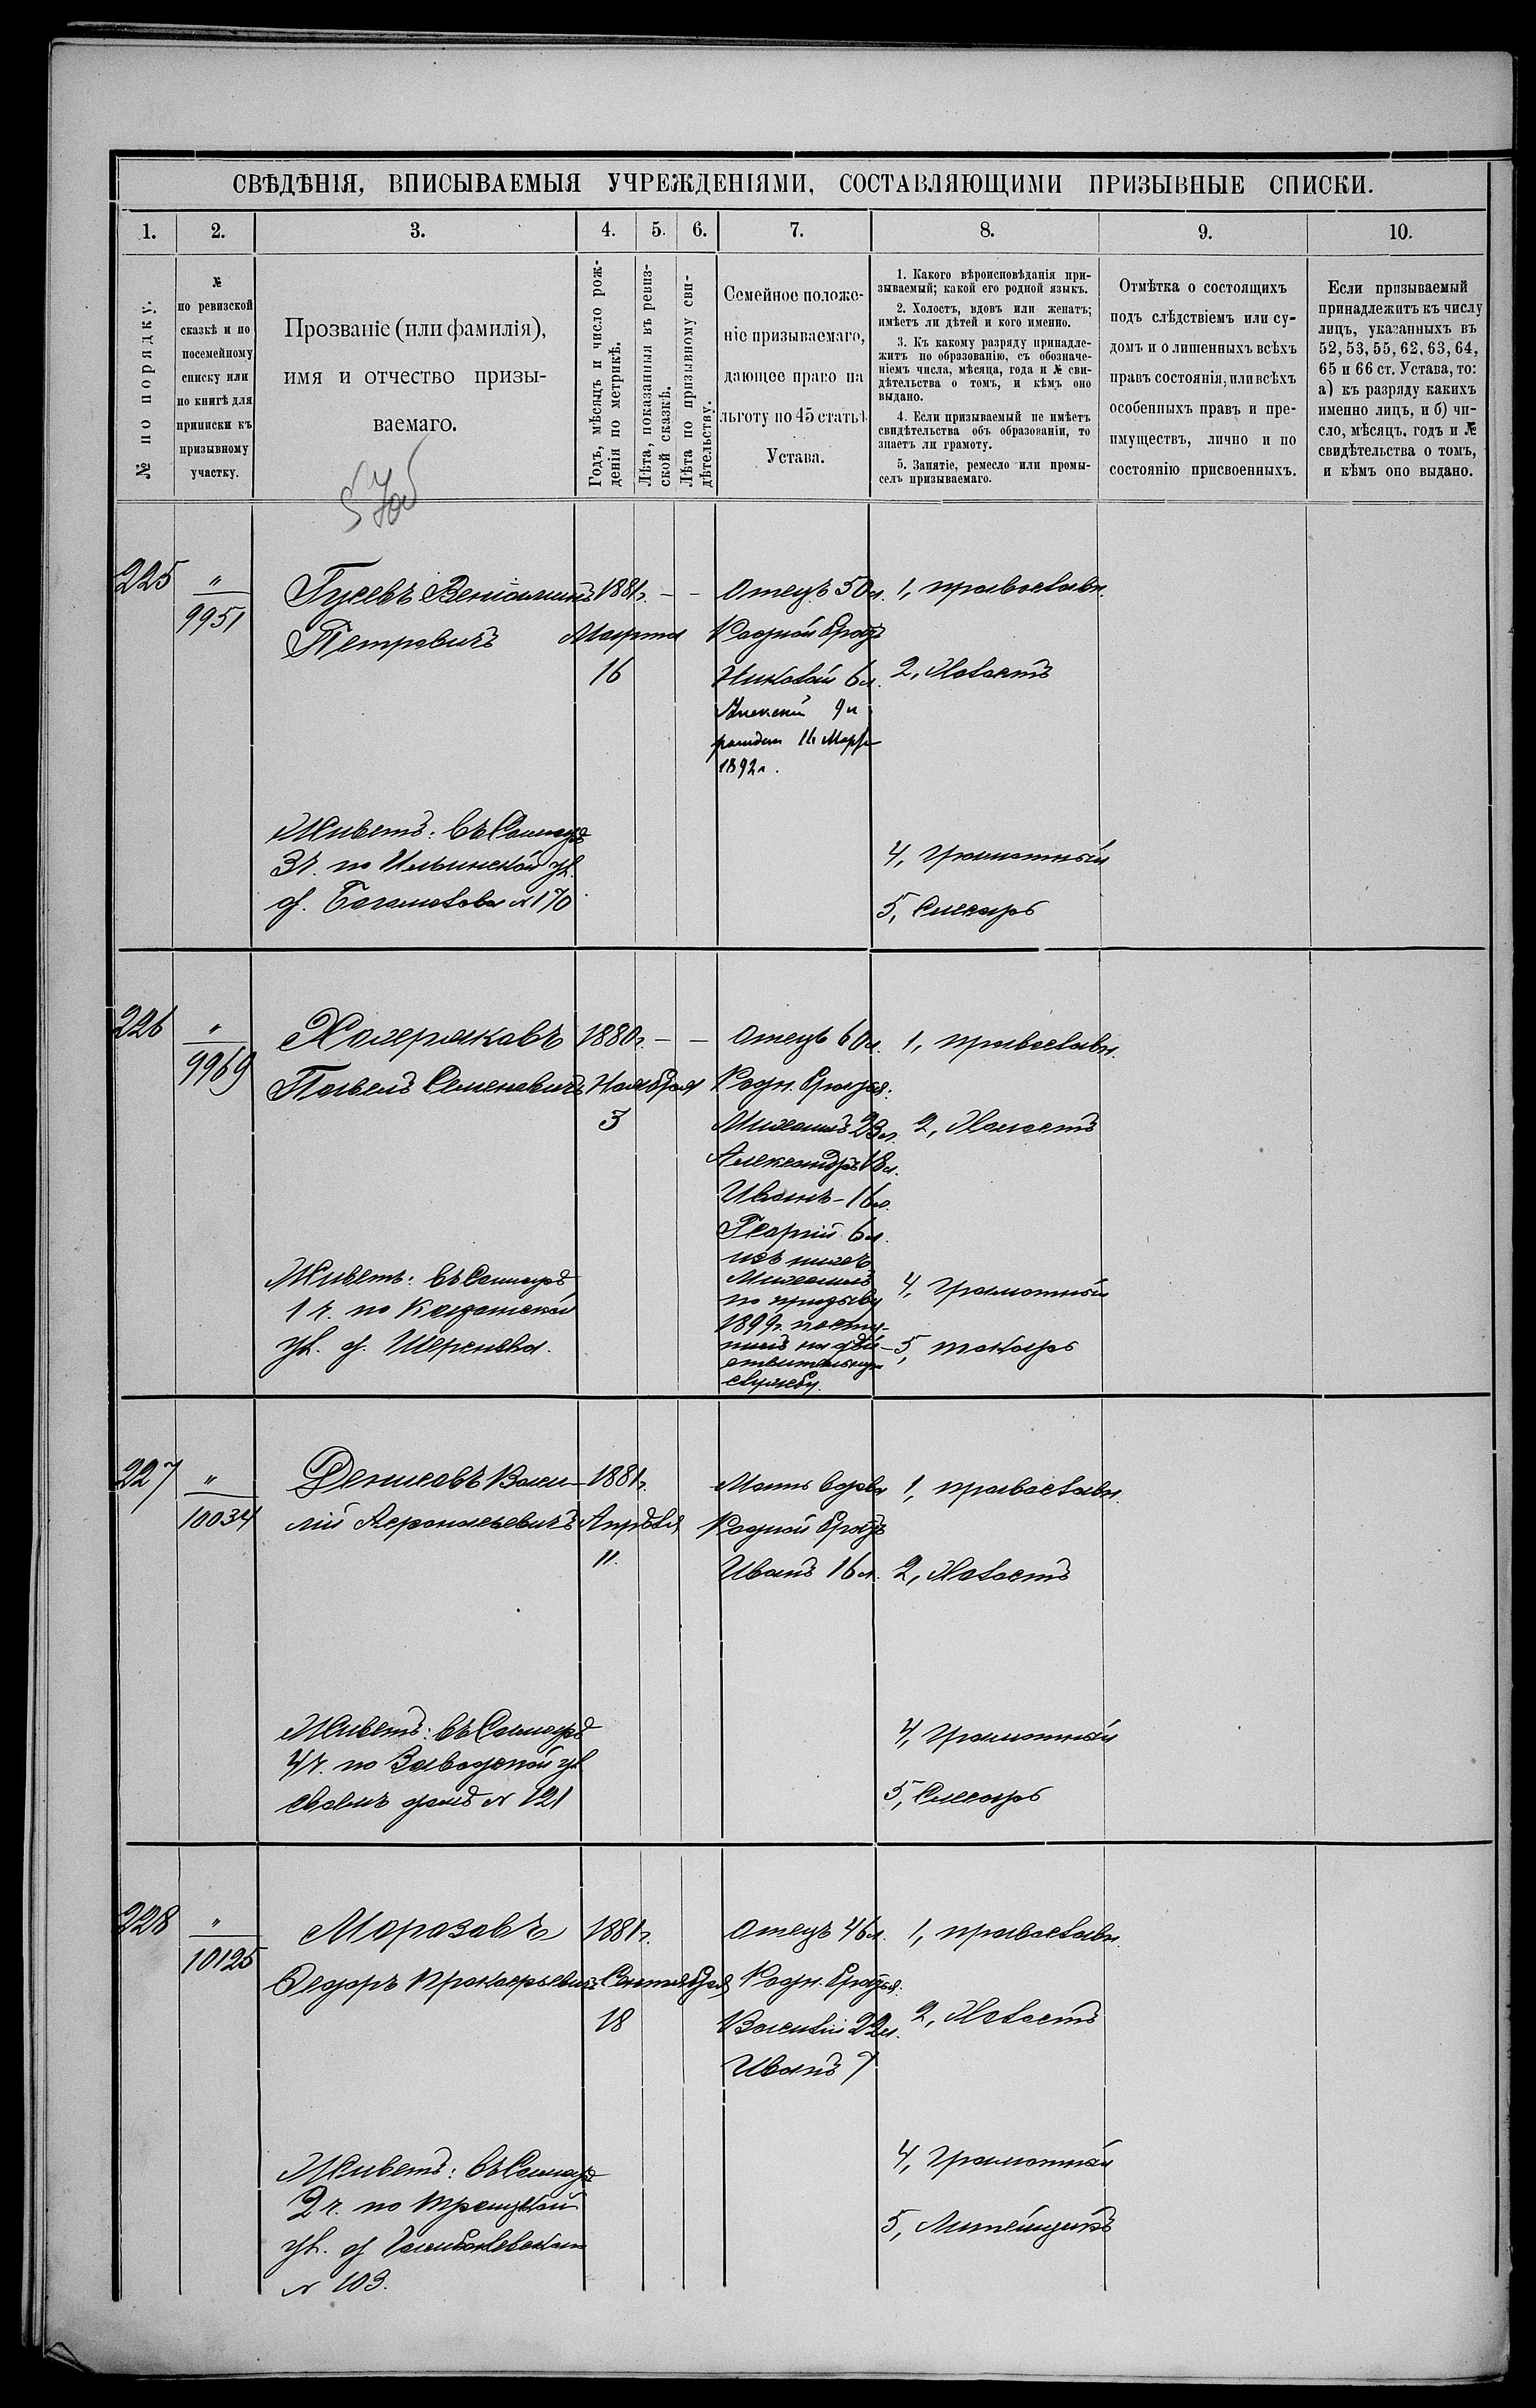 СВѢДѢНІЯ, ВПИСЫВАЕМЫЯ УЧРЕЖДЕНІЯМИ, СОСТАВЛЯЮЩИМИ ПРИЗЫВНЫЕ СПИСКИ.
1. 2. 3. 4. 5. 6. 7. 8. 9. 10.
№ по порядку.
№
по ревизской
сказкѣ и по
посемейному
списку или
по книгѣ для
приписки къ
призывному
участку.
Прозваніе (или фамилія),
имя и отчество призы-
ваемаго.
Годъ, мѣсяцъ и число рож-
денія по метрикѣ.
Лѣта, показанныя въ ревиз-
ской сказкѣ.
Лѣта по призывному сви-
дѣтельству.
Семейное положе-
ніе призываемаго,
дающее право на
льготу по 45 статьѣ
Устава.
1. Какого вѣроисповѣданія при-
зываемый; какой его родной языкъ.
2. Холостъ, вдовъ или женатъ;
имѣетъ ли дѣтей и кого именно.
3. Къ какому разряду принадле-
житъ по образованію, съ обозначе-
ніемъ числа, мѣсяца, года и № сви-
дѣтельства о томъ, и кѣмъ оно
выдано.
4. Если призываемый не имѣетъ
свидѣтельства объ образованіи, то
знаетъ ли грамоту.
5. Занятіе, ремесло или промы-
селъ призываемаго.
Отмѣтка о состоящихъ
подъ слѣдствіемъ или су-
домъ и о лишенныхъ всѣхъ
правъ состоянія, или всѣхъ
особенныхъ правъ и пре-
имуществъ, лично и по
состоянію присвоенныхъ.
Если призываемый
принадлежитъ къ числу
лицъ, указанныхъ въ
52, 53, 55, 62, 63, 64,
65 и 66 ст. Устава, то:
а) къ разряду какихъ
именно лицъ, и б) чи-
сло, мѣсяцъ, годъ и №
свидѣтельства о томъ,
и кѣмъ оно выдано.
225
"
9951
Гусевъ Веніаминъ
Петровичъ
1881г. — —
Марта
16
Отецъ 50 л.
Родной братъ
Николай 6 л.
Алексей 9 л
рожден 16 Марта
1892 г.
1, православн.
2, Холостъ
Живетъ: въ Самарѣ
3 ч. по Ильинской ул.
д. Богомолова № 170
4, Грамотный
5, Слесарь
226
"
9969
Холеряковъ
Павелъ Семеновичъ
1880г. — —
Ноября
3
Отецъ 60 л.
Родн. братья:
Михаилъ 23 л.
Александръ 18 л.
Иванъ – 16 л.
Георгій 6 л.
изъ нихъ
Михаилъ
по призыву
1899 г. посту-
пилъ на дѣй-
ствительную
службу.
1, православн.
2, Холостъ
Живетъ: въ Самарѣ
1 ч. по Казанской
ул. д. Шерснева.
4, Грамотный
5, токарь
227
"
10034
Денисовъ Васи-
лій Афонасьевичъ
1881г.
Апрѣля
11.
Мать вдова
Родной братъ
Иванъ 16 л.
1, православн.
2, Холостъ
Живетъ: въ Самарѣ
4 ч. по Заводской ул
своемъ домѣ № 121
4, Грамотный
5, Слесарь
228
"
10125
Морозовъ
Федоръ Прокофьевичъ
1881г.
Сентября
18
Отецъ 46 л.
Родн. братья:
Василій 22 л.
Иванъ 7
1, православн.
2, Холостъ
Живетъ: въ Самарѣ
2 ч. по Троицкой
ул. д
№ 103.
4, Грамотный
5, Литейщикъ